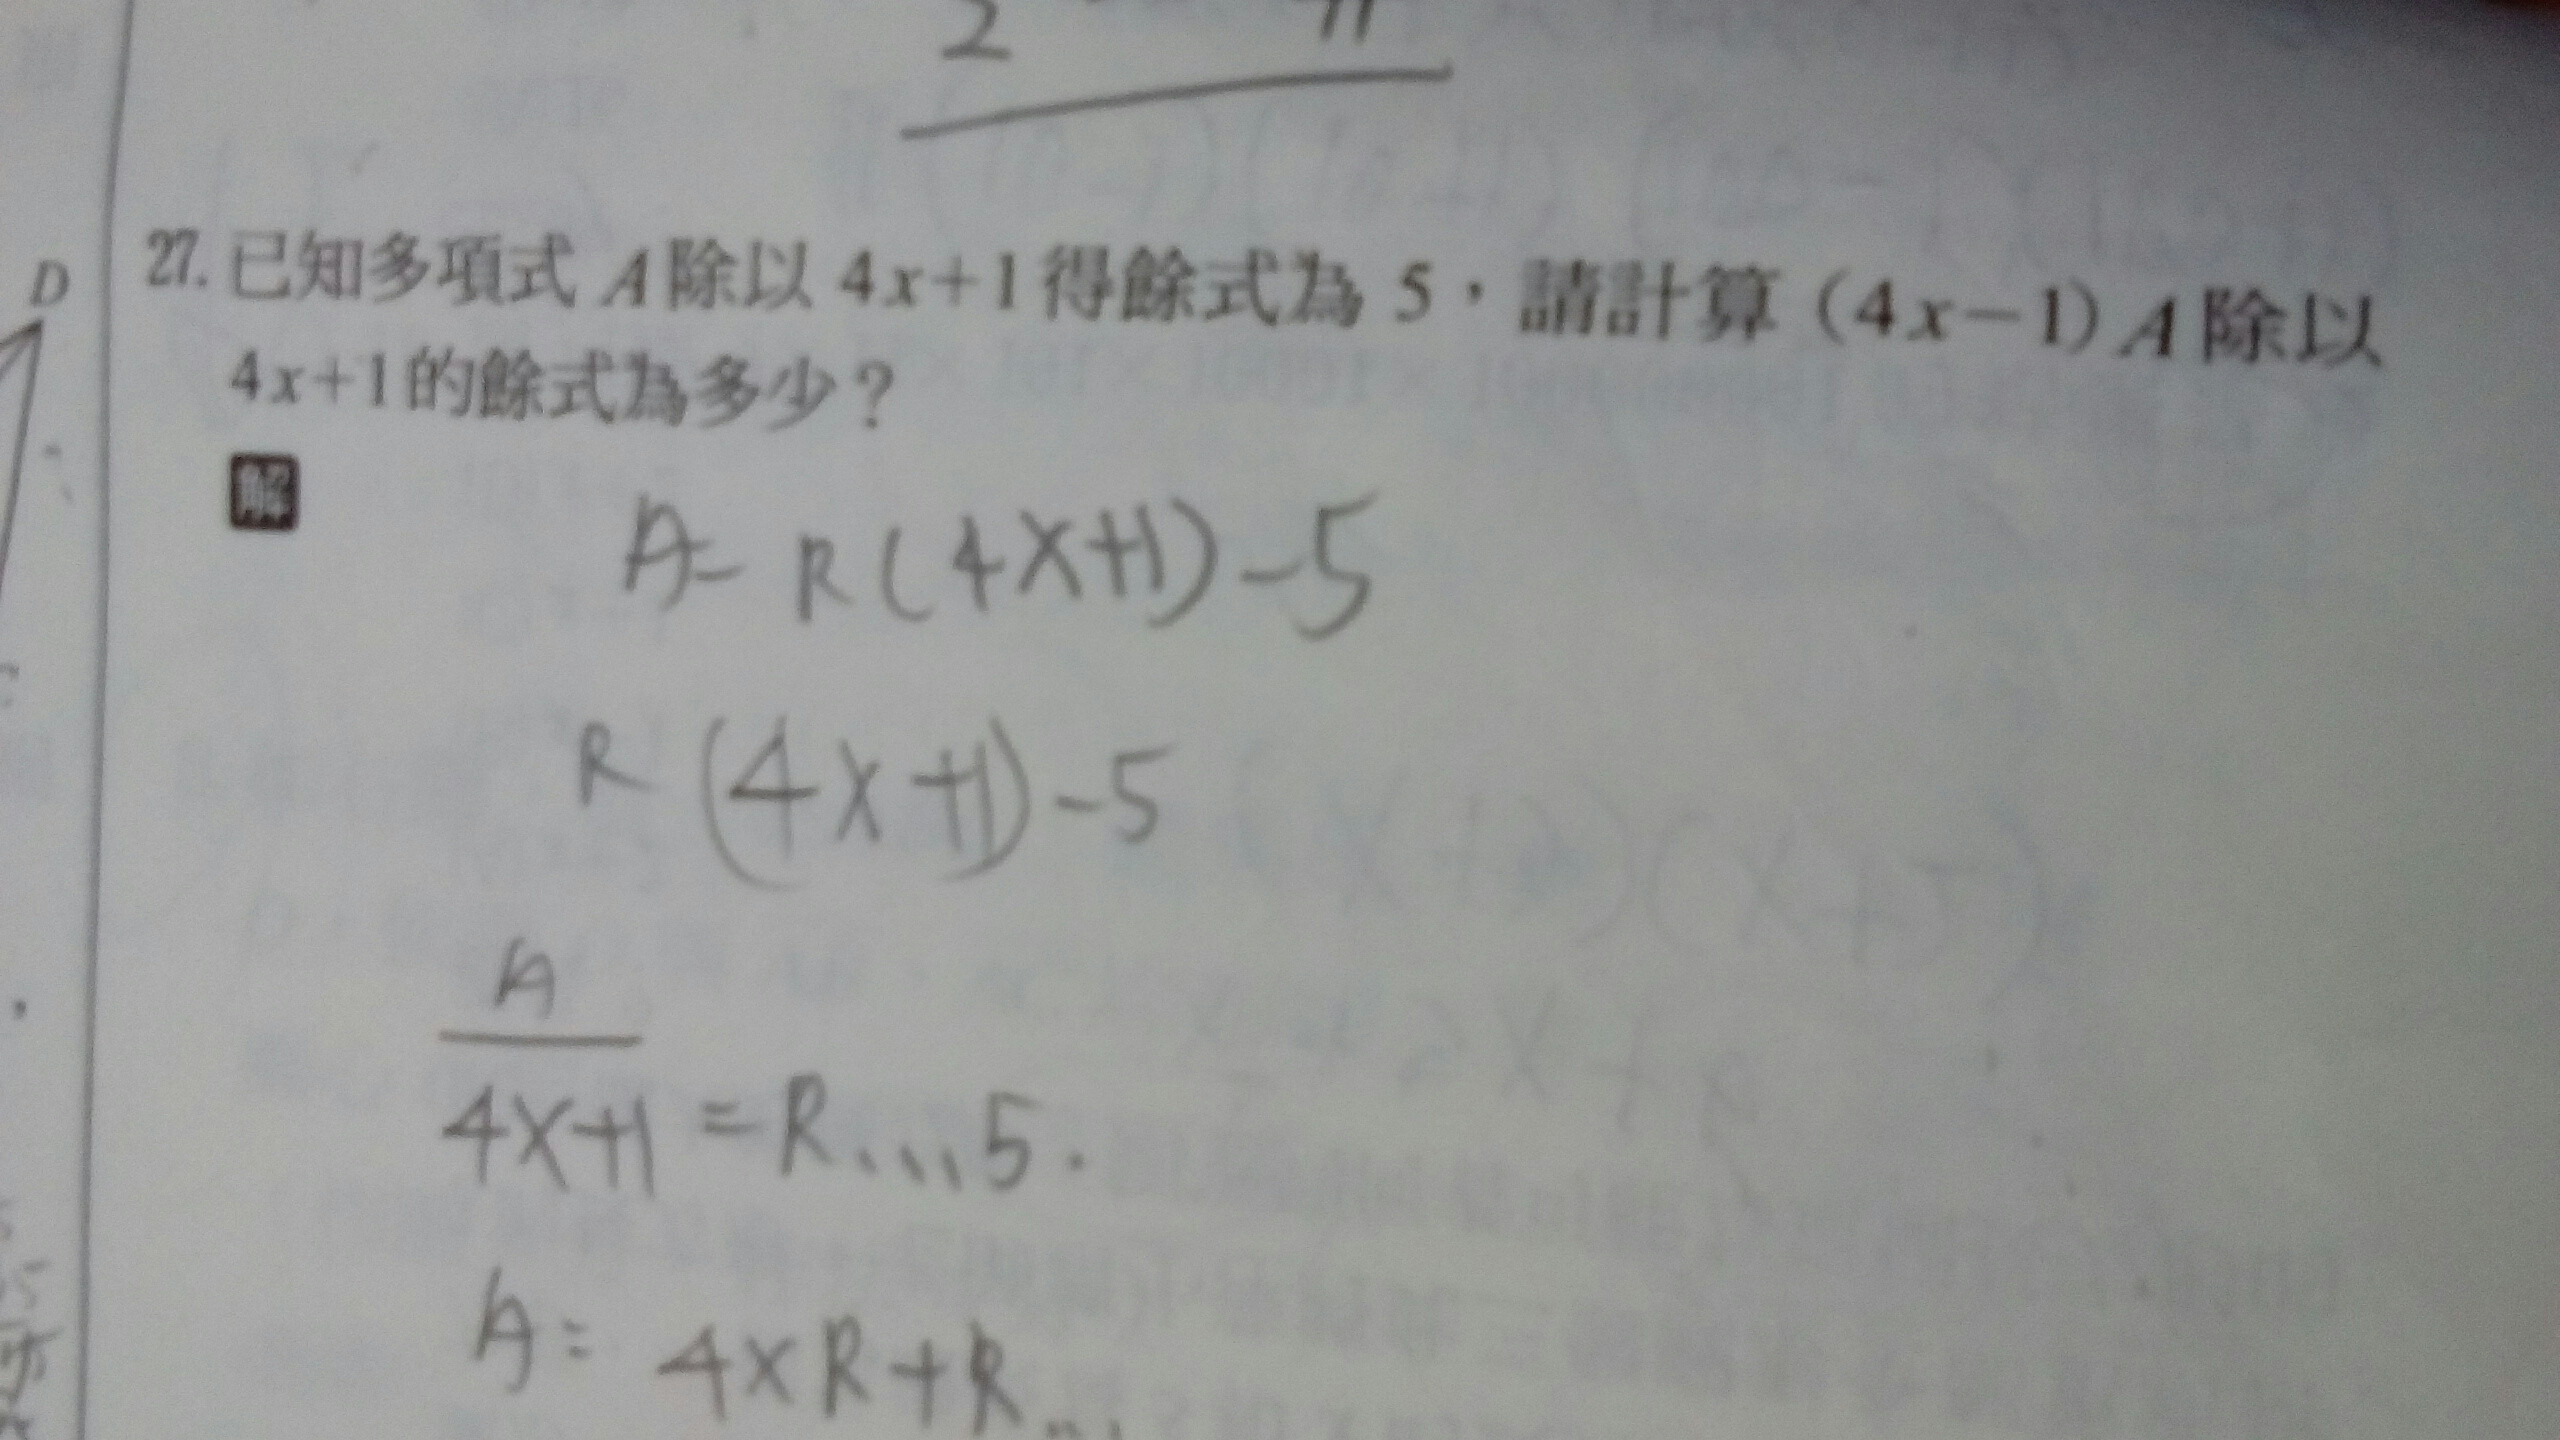 2 π
D
27. 已知多項式 A 除以 4x+1 得餘式為 5，請計算 (4x-1) A 除以
4x+1 的餘式為多少？
解
A= R(4X+1)-5
R (4X+1)-5
A
4X+1 =R...5.
A= 4XR+R...